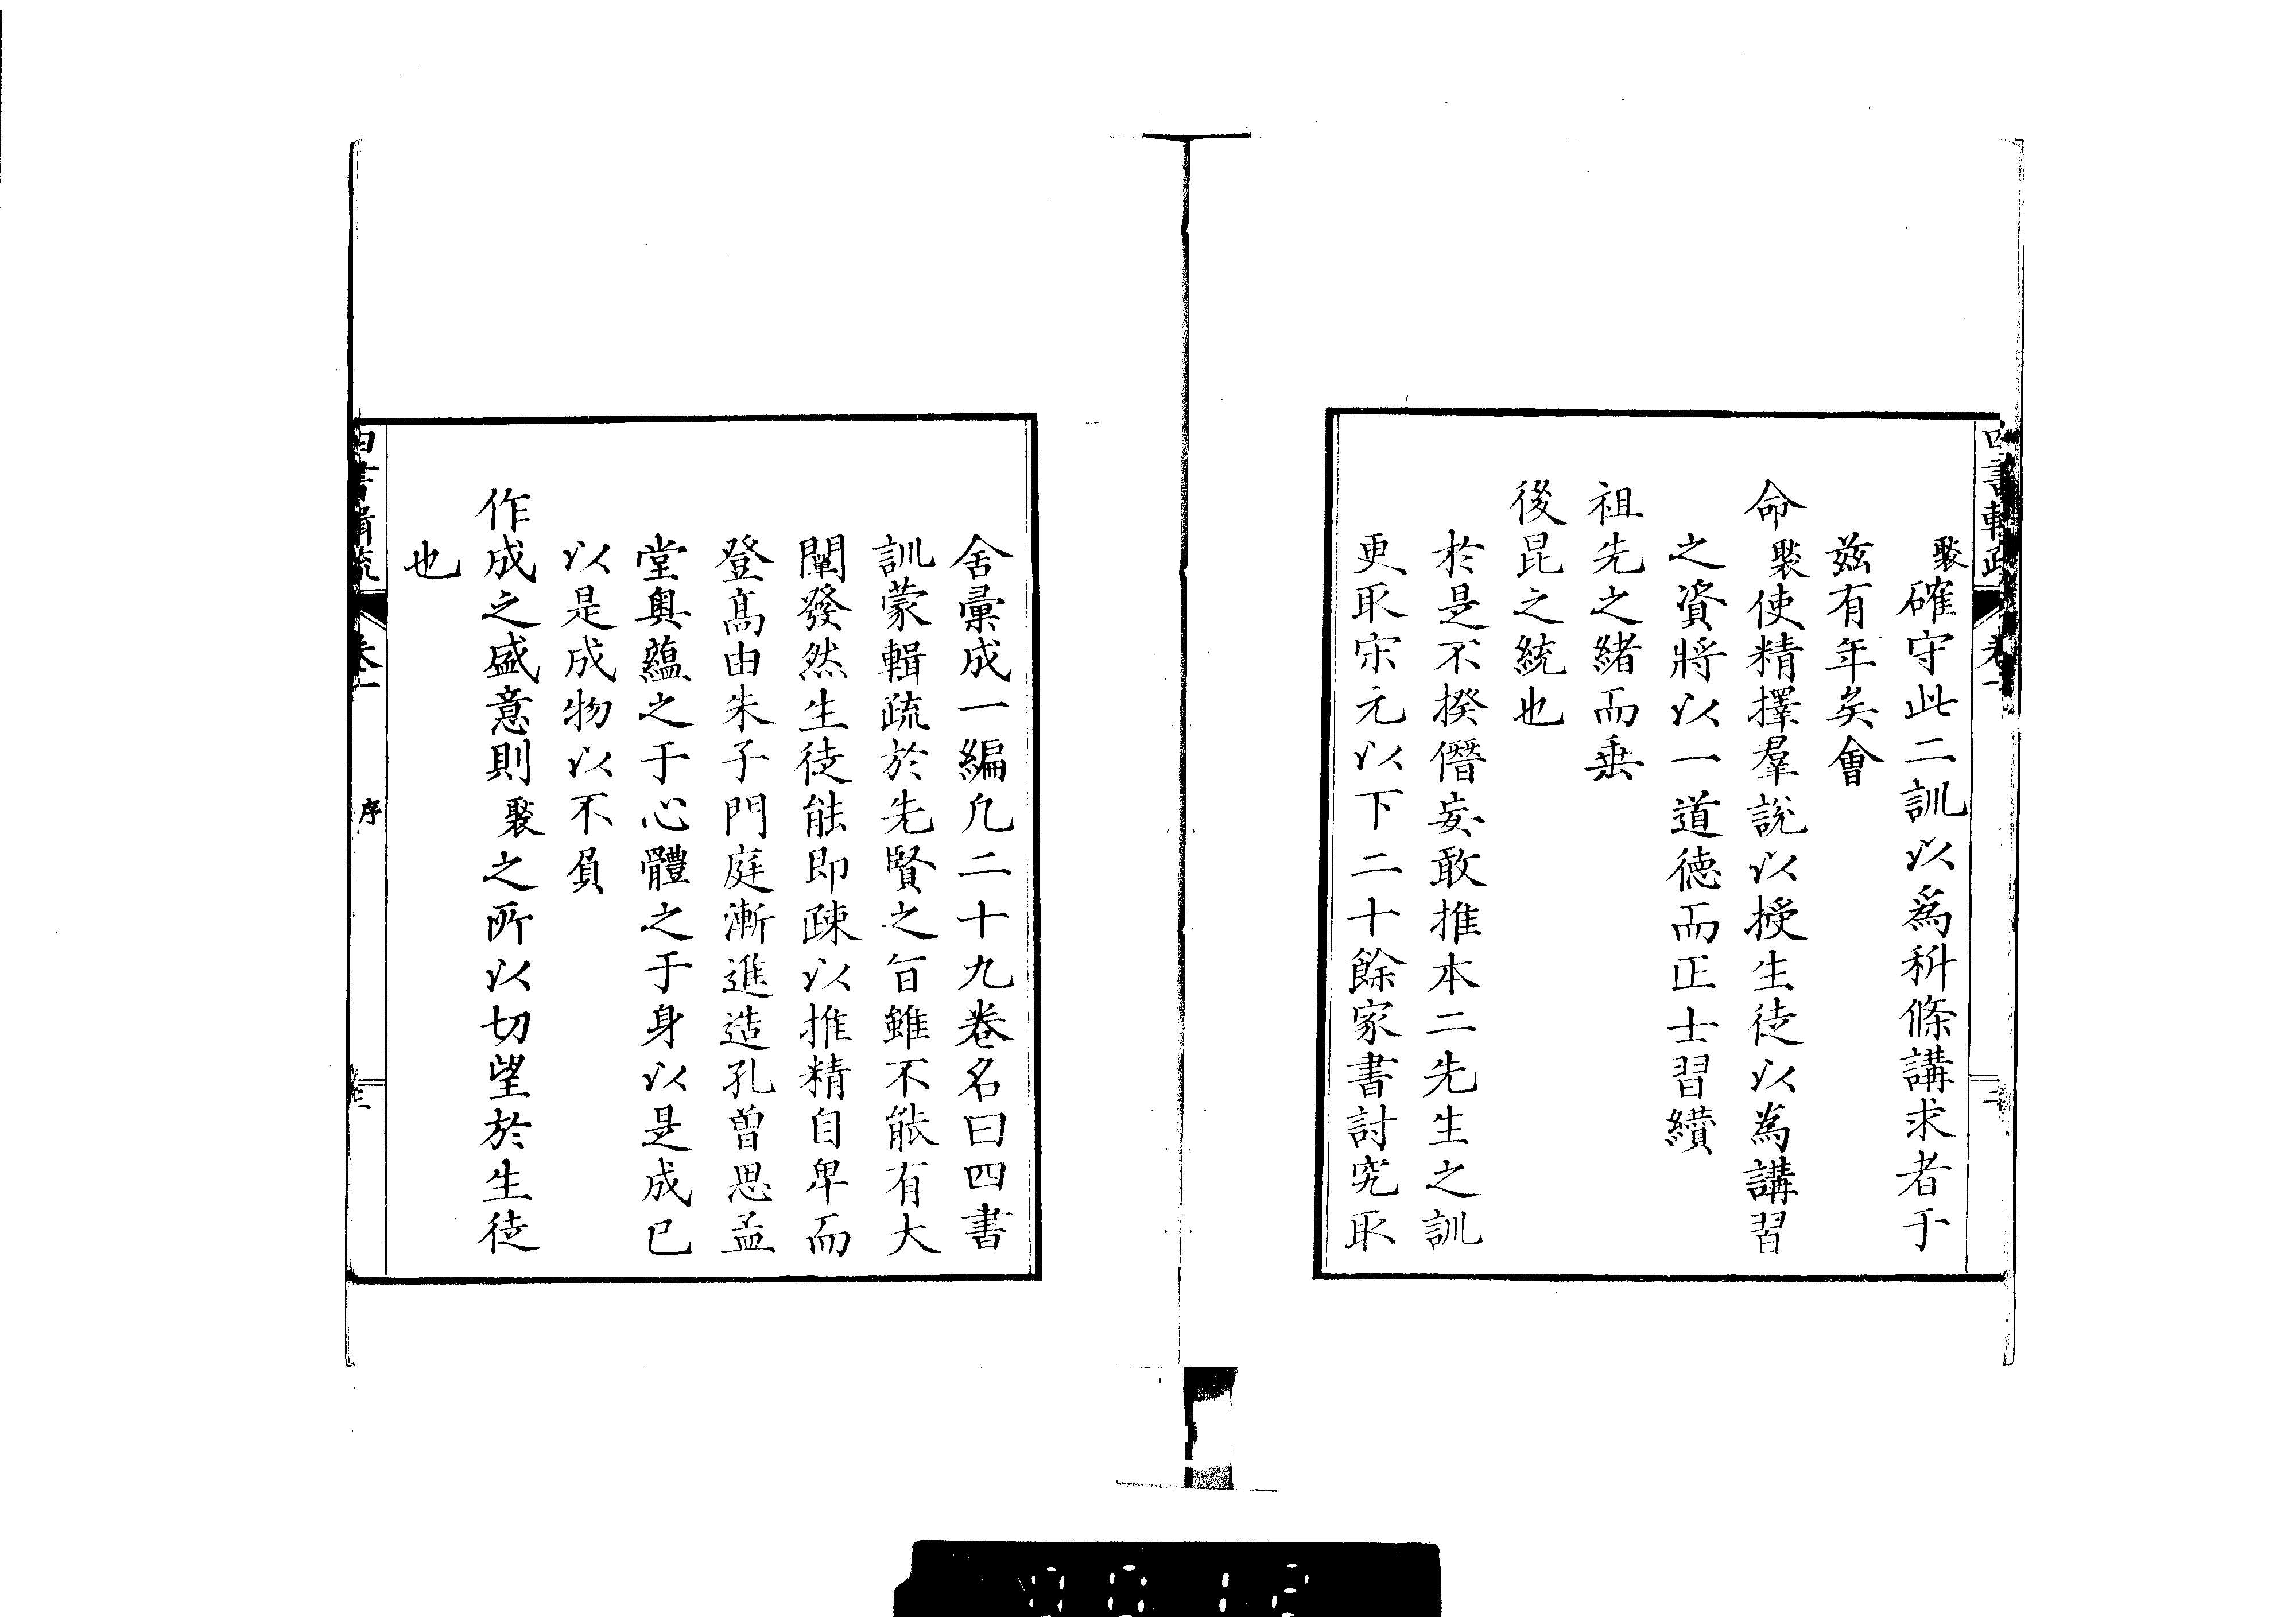 四書輯疏
卷一
褧確守此二訓以爲科條講求者于
茲有年矣會
命褧使精擇羣說以授生徒以為講習
之資將以一道徳而正士習纘
祖先之緒而垂
後昆之統也
於是不揆僭妄敢推本二先生之訓
更取宋元以下二十餘家書討究取
舍彙成一編凢二十九卷名曰四書
訓蒙輯疏於先賢之旨雖不能有大
闡發然生徒能即疎以推精自卑而
登髙由朱子門庭漸進造孔曽思孟
堂奥蘊之于心體之于身以是成已
以是成物以不負
作成之盛意則褧之所以切望於生徒
也
四書輯疏
卷一
序
0012